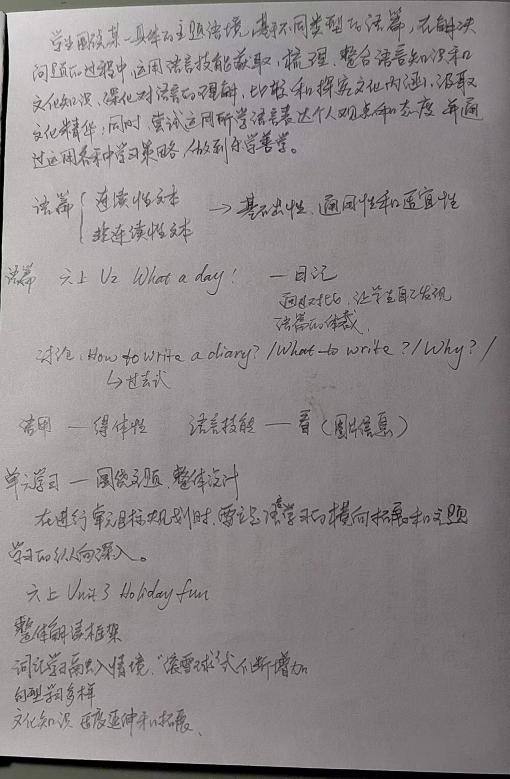 学生围绕某一具体的主题语境，基于不同类型的语篇，在解决
问题的过程中，运用语言技能获取、梳理、整合语言知识和
文化知识，深化对语言的理解，比较和探究文化内涵，汲取
文化精华；同时，尝试运用所学语言表达个人观点和态度，并通
过运用各种学习策略，做到乐学善学。
语篇 { 连续性文本
非连续性文本 → 基础性、通用性和适宜性
语篇 六上 U2 What a day! — 日记
通过对比，让学生自己发现
语篇的体裁.
讨论: How to write a diary? / What to write? / Why? /
↳ 过去式
语用 — 得体性 语言技能 — 看（图片信息）
单元学习 — 围绕主题，整体设计
在进行单元目标规划时，要注意语言学习的横向拓展和主题
学习的纵向深入。
六上 Unit 3 Holiday fun
整体解读框架
词汇学习融入情境，“滚雪球”式不断增加
句型学习多样
文化知识 适度延伸和拓展.